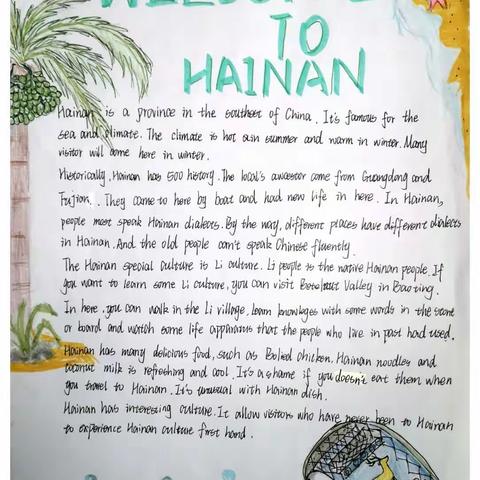 WELCOME
TO
HAINAN
Hainan is a province in the southest of China. It's famous for the
sea and climate. The climate is hot sun summer and warm in winter. Many
visitor will come here in winter.
Historically, Hainan has 500 history. The local's awcestor come from Guangdong and
Fujion. They came to here by boat and had new life in here. In Hainan,
people most speak Hainan dialects. By the way, different places have different dialects
in Hainan. And the old people can't speak Chinese fluently.
The Hainan special culture is Li culture. Li people is the native Hainan people. If
you want to learn some Li culture, you can visit Valley in Baoting.
In here, you can walk in the Li village, learn knowleges with some words in the stone
or board and watch some life apparatus that the people who live in past had used.
Hainan has many delicious food, such as Bolied chicken, Hainan noodles and
coconut milk is refreshing and cool. It's a shame if you doesn't eat them when
you travel to Hainan. It's unusual with Hainan dish.
Hainan has interesting culture. It allow visitors who have never been to Hainan
to experience Hainan culture first hand.